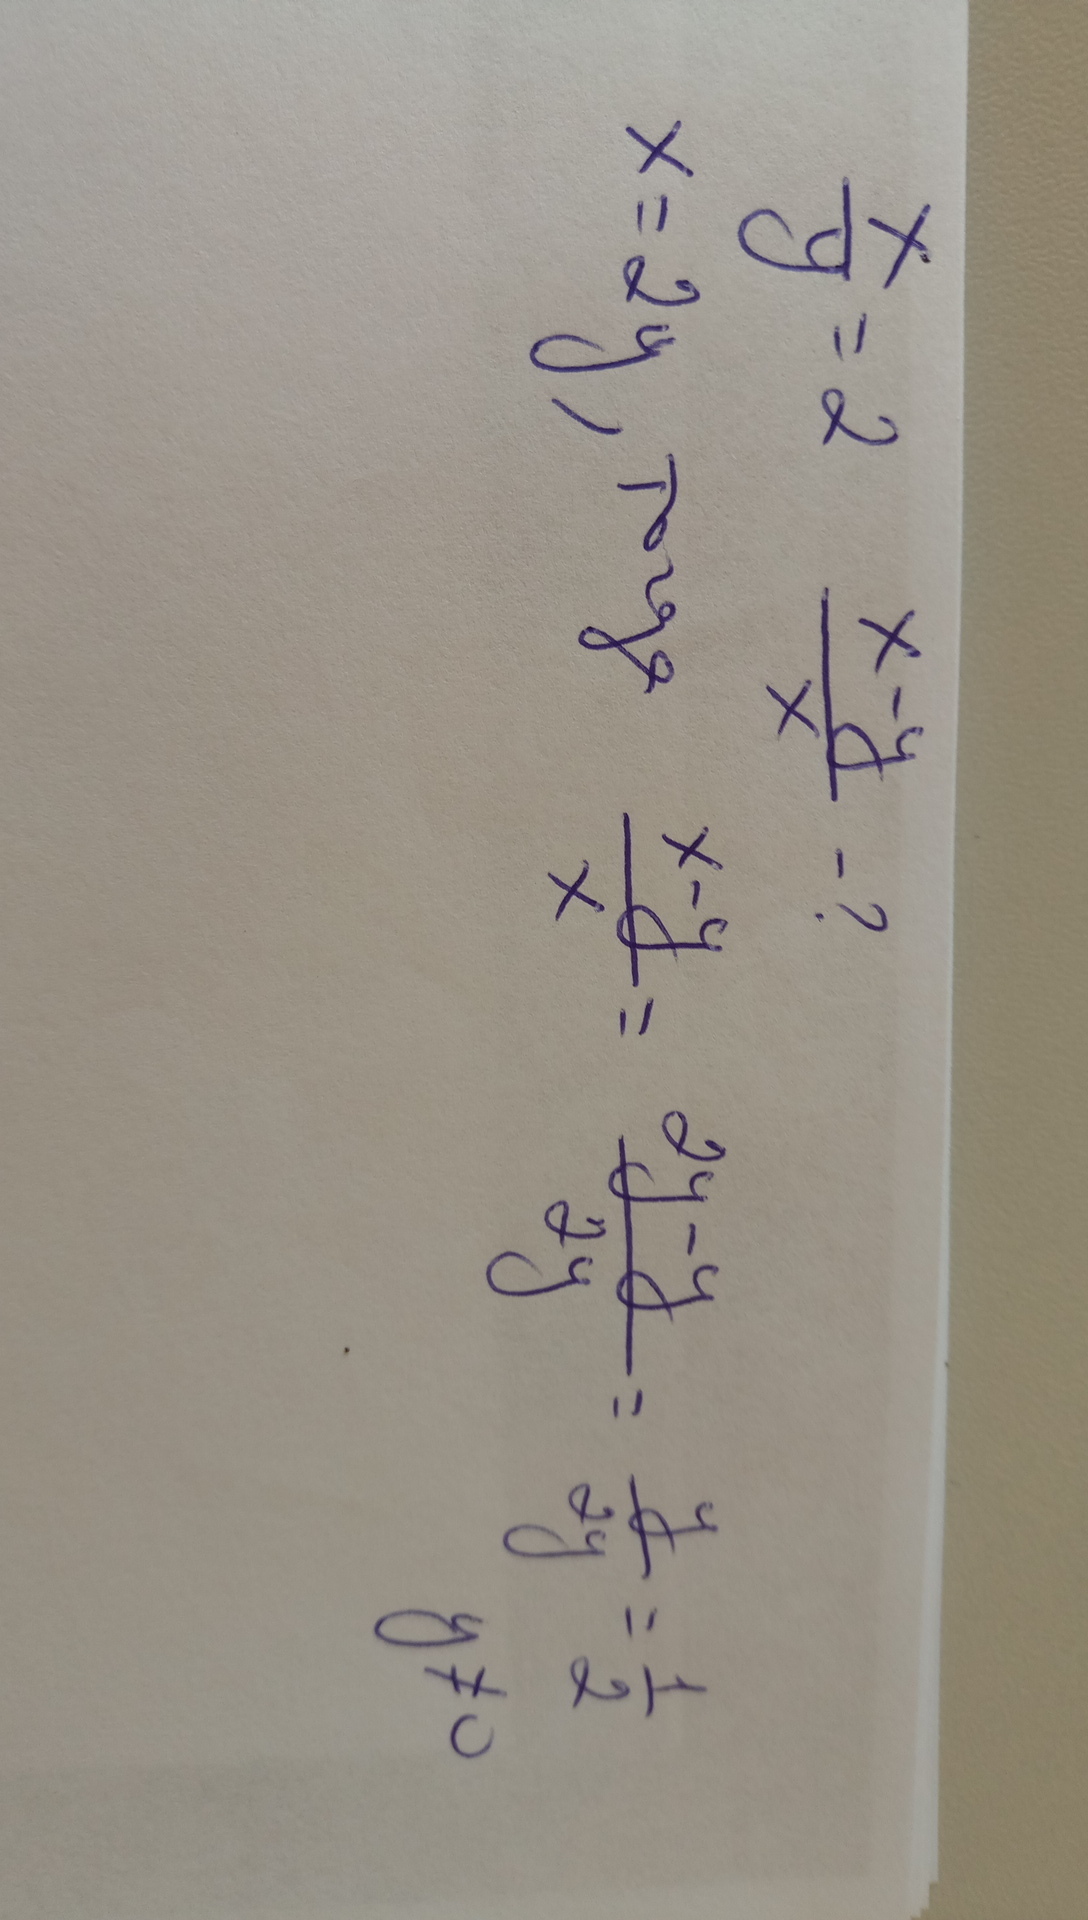 x/y = 2   (x-y)/x - ?
x = 2y, тогда   (x-y)/x = (2y-y)/2y = y/2y = 1/2
y ≠ 0